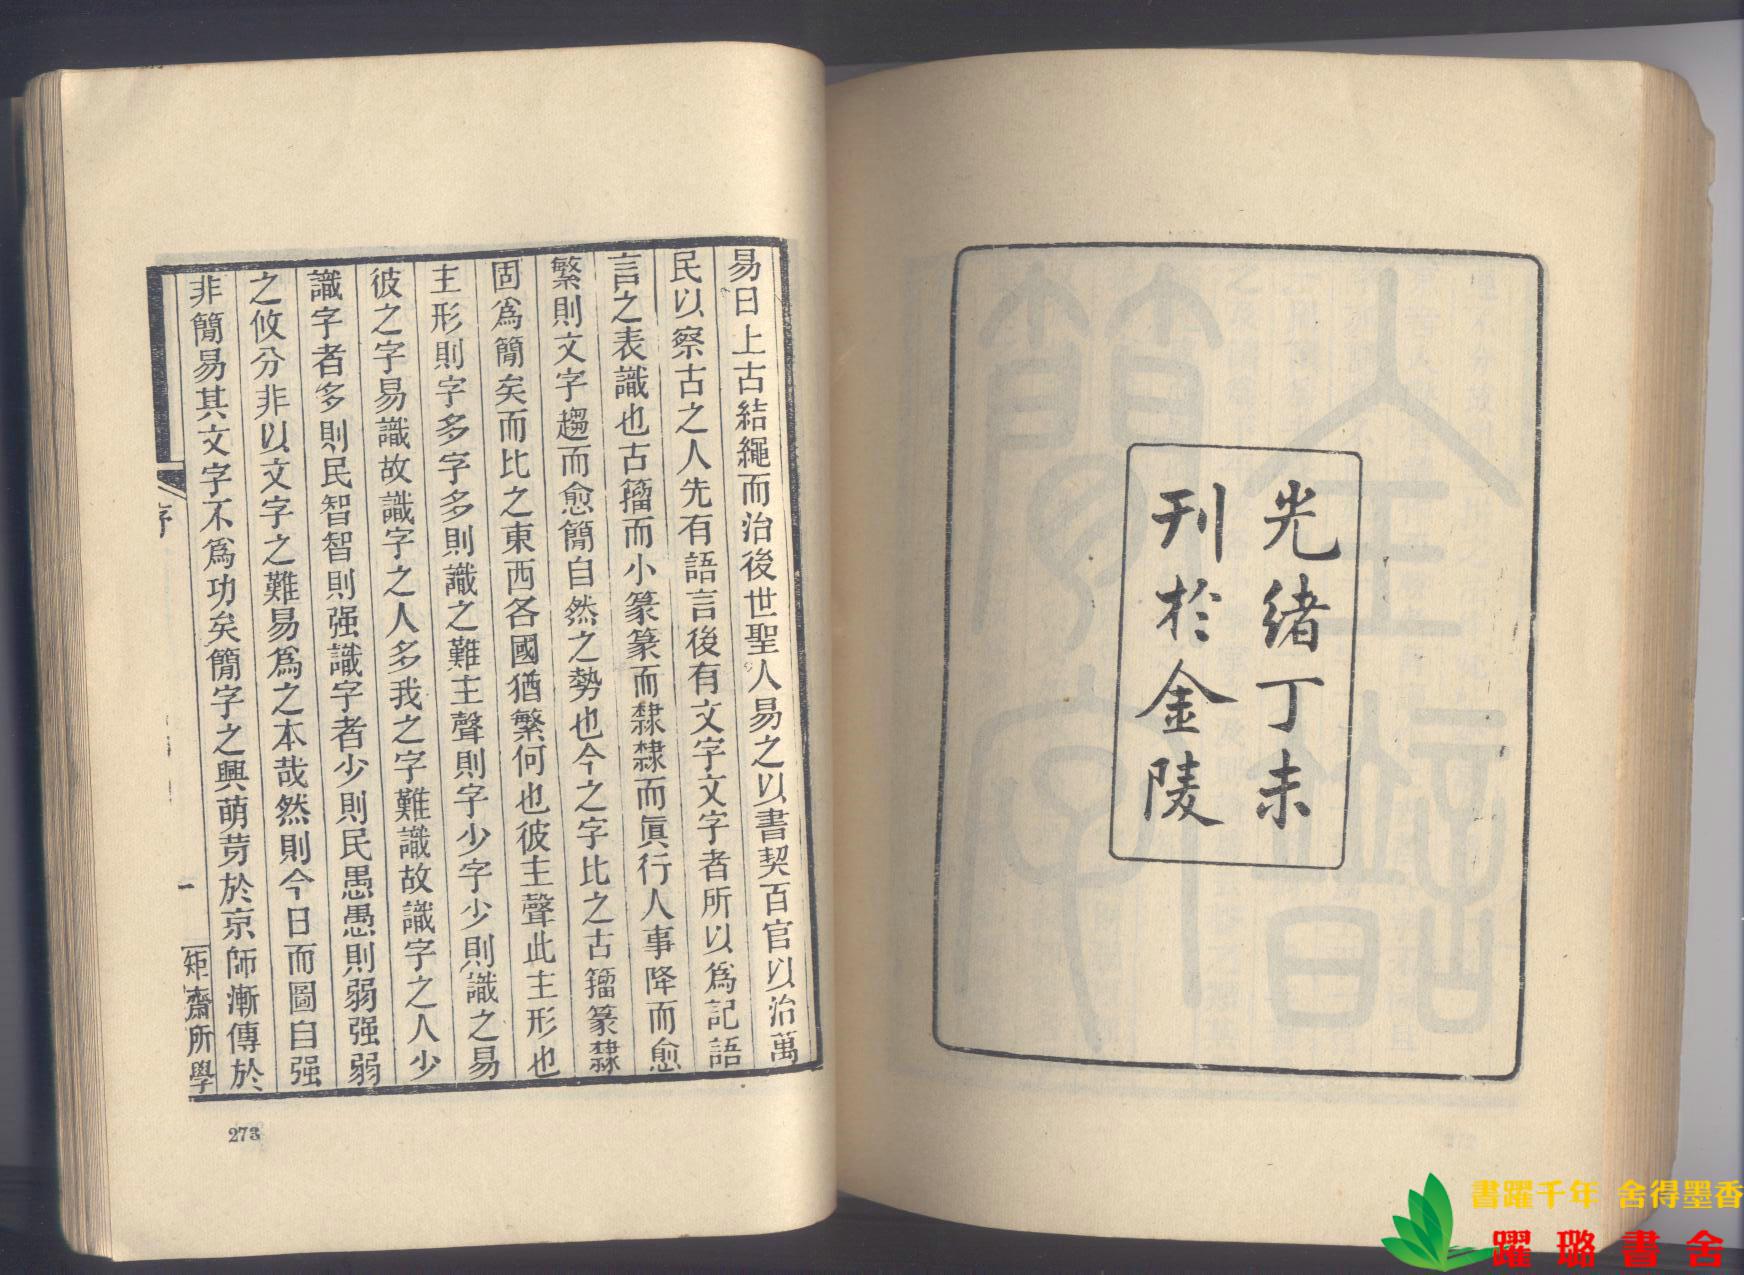 光緒丁未
刊於金陵
易曰上古結繩而治後世聖人易之以書契百官以治萬
民以察古之人先有語言後有文字文字者所以爲記語
言之表識也古籀而小篆篆而隸隸而眞行人事降而愈
繁則文字趨而愈簡自然之勢也今之字比之古籀篆隸
固爲簡矣而比之東西各國猶繁何也彼主聲此主形也
主形則字多字多則識之難主聲則字少字少則識之易
彼之字易識故識字之人多我之字難識故識字之人少
識字者多則民智智則强識字者少則民愚愚則弱强弱
之攸分非以文字之難易爲之本哉然則今日而圖自强
非簡易其文字不爲功矣簡字之興萌芽於京師漸傳於
序
一
矩齋所學
273
書躍千年 舍得墨香
躍璐書舍